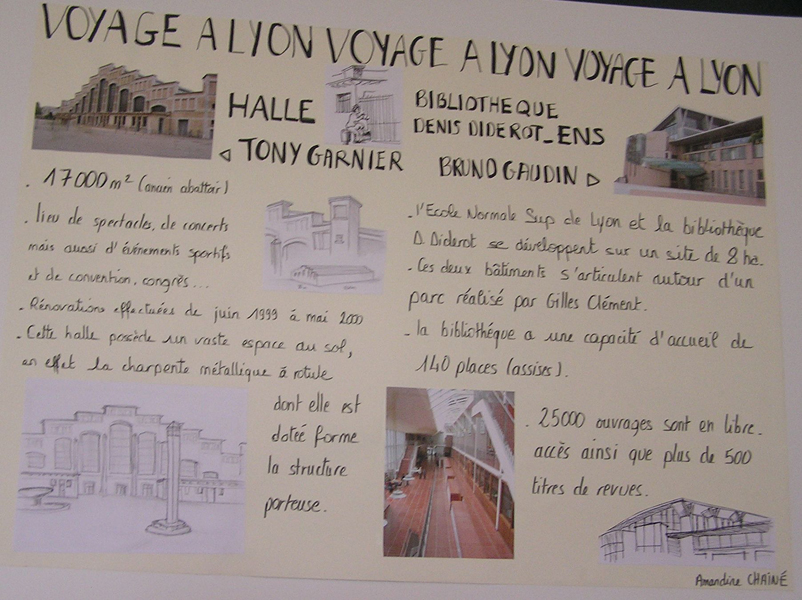 VOYAGE A LYON VOYAGE A LYON VOYAGE A LYON
HALLE
◁ TONY GARNIER
. 17000 m² (ancien abattoir)
. lieu de spectacles, de concerts
mais aussi d'événements sportifs
et de convention, congrès...
. Rénovations effectuées de juin 1999 à mai 2000
. Cette halle possède un vaste espace au sol,
en effet la charpente métallique à rotule
dont elle est
dotée forme
la structure
porteuse.
BIBLIOTHEQUE
DENIS DIDEROT_ENS
BRUNO GAUDIN ▷
. l'Ecole Normale Sup de Lyon et la bibliothèque
D. Diderot se développent sur un site de 8 ha.
. Ces deux bâtiments s'articulent autour d'un
parc réalisé par Gilles Clément.
. la bibliothéque a une capacité d'accueil de
140 places (assises).
. 25000 ouvrages sont en libre.
accès ainsi que plus de 500
titres de revues.
Amandine CHAINÉ